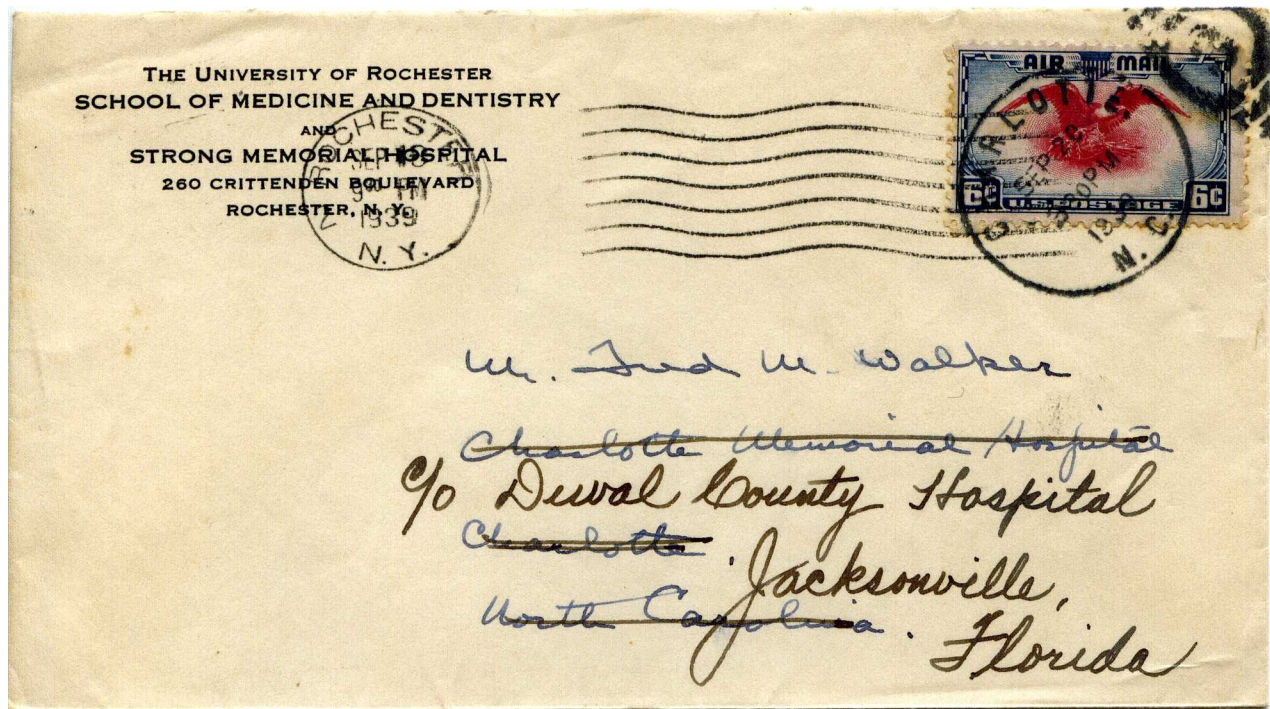 THE UNIVERSITY OF ROCHESTER
SCHOOL OF MEDICINE AND DENTISTRY
AND
STRONG MEMORIAL HOSPITAL
260 CRITTENDEN BOULEVARD
ROCHESTER, N. Y.
ROCHESTER
SEP
1939
N. Y.
AIR MAIL
6¢ U.S. POSTAGE 6¢
SEP 20
PM
1939
N. C.
Mr. Fred M. Walker
Charlotte Memorial Hospital
c/o Duval County Hospital
Charlotte
Jacksonville,
North Carolina.
Florida